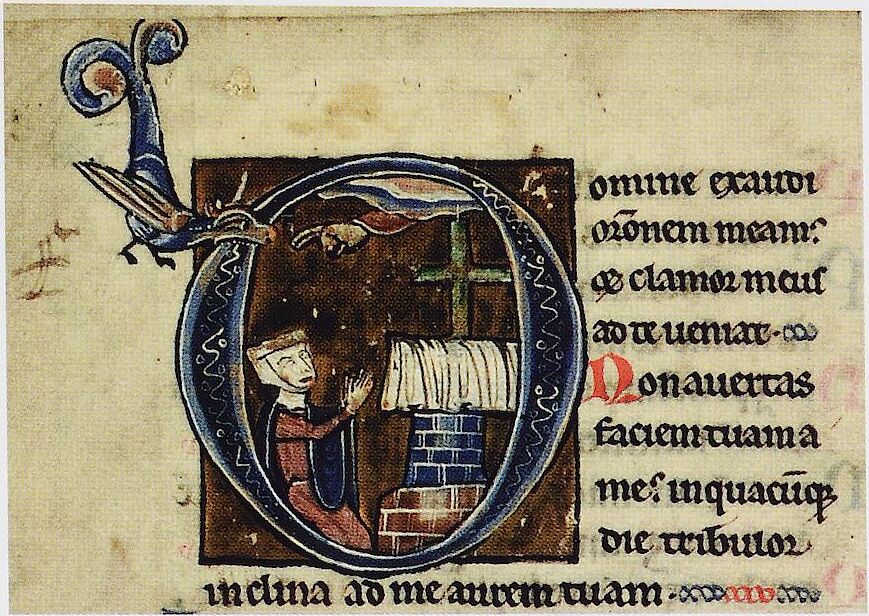 Domine exaudi
or̄onem meam:
⁊ clamor meus
ad te veniat.
Non avertas
faciem tuam a
me: in quacūq̨
die tribulor
inclina ad me aurem tuam.